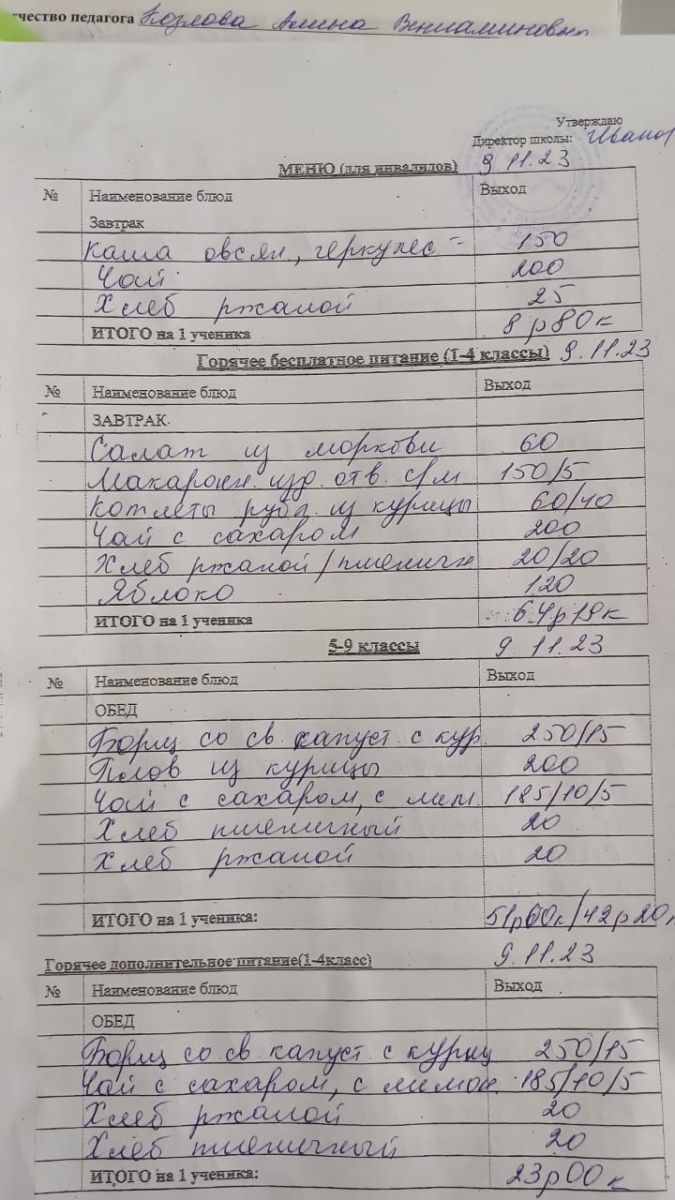 чество педагога Козлова Алина Вениаминовна
Утверждаю
Директор школы: Иванов
МЕНЮ (для инвалидов) 9.11.23
№ Наименование блюд Выход
Завтрак
Каша овсян, геркулес - 150
Чай 200
Хлеб ржаной 25
ИТОГО на 1 ученика 8р80к
Горячее бесплатное питание (1-4 классы) 9.11.23
№ Наименование блюд Выход
ЗАВТРАК
Салат из моркови 60
Макарон. изд. отв. с/м 150/5
Котлеты рубл. из курицы 60/40
Чай с сахаром 200
Хлеб ржаной/пшеничн 20/20
Яблоко 120
ИТОГО на 1 ученика 64р19к
5-9 классы 9.11.23
№ Наименование блюд Выход
ОБЕД
Борщ со св. капуст с кур. 250/15
Плов из курицы 200
Чай с сахаром, с лим. 185/10/5
Хлеб пшеничный 20
Хлеб ржаной 20
ИТОГО на 1 ученика: 51р60к/42р20к
Горячее дополнительное питание(1-4класс) 9.11.23
№ Наименование блюд Выход
ОБЕД
Борщ со св. капуст с куриц 250/15
Чай с сахаром, с лимон. 185/10/5
Хлеб ржаной 20
Хлеб пшеничный 20
ИТОГО на 1 ученика: 23р00к